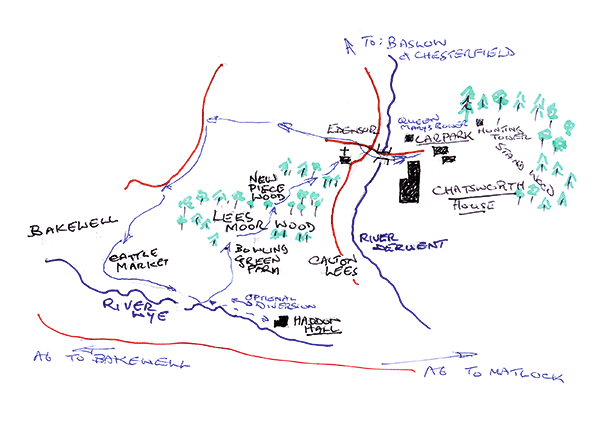 TO: BASLOW
& CHESTERFIELD
QUEEN
MARYS BOWER
CARPARK
HUNTING
TOWER
STAND WOOD
EDENSOR
CHATSWORTH
HOUSE
NEW
PIECE
WOOD
LEES
MOOR WOOD
BAKEWELL
CATTLE
MARKET
BOWLING
GREEN
FARM
CALTON
LEES
RIVER
DERWENT
RIVER
WYE
OPTIONAL
DIVERSION
HADDON
HALL
A6 TO BAKEWELL
A6 TO MATLOCK